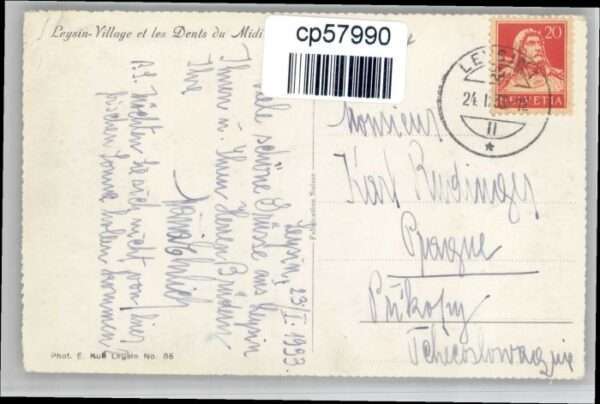 Leysin-Village et les Dents du Midi
cp57990
20
HELVETIA
LEYSIN
24.I.
II
Leysin, 23/I. 1933.
Viele schöne Grüsse aus Leysin
Ihnen u. Ihren Herrn Brüdern
Ihre
P.S. Möchten Sie sich nicht von hier
bischen Sonne holen kommen
Monsieur
Karl Rudinger
Prague
Příkopy
Tchécoslovaquie
Publication Suisse
Phot. E. Kull Leysin No. 86